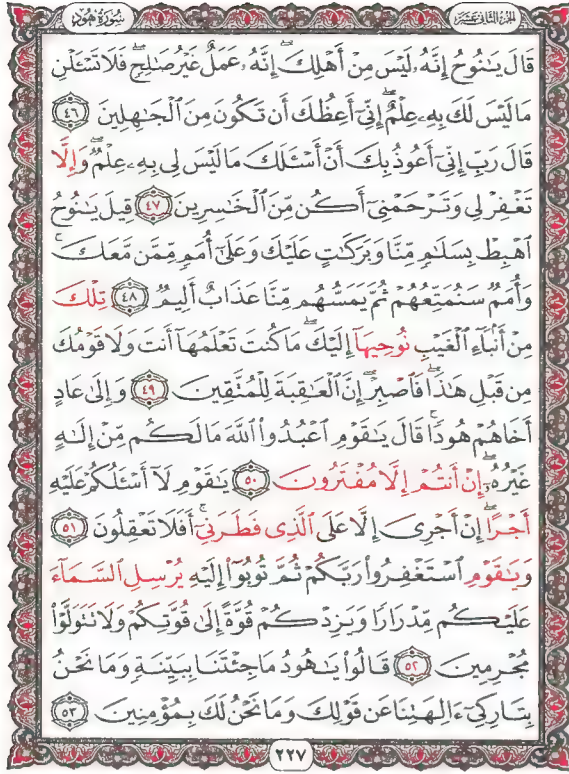 سُورَةُ هُودٍ
الجزء الثاني عشر
قَالَ يَـٰنُوحُ إِنَّهُۥ لَيْسَ مِنْ أَهْلِكَ ۖ إِنَّهُۥ عَمَلٌ غَيْرُ صَـٰلِحٍ ۖ فَلَا تَسْـَٔلْنِ
مَا لَيْسَ لَكَ بِهِۦ عِلْمٌ ۖ إِنِّىٓ أَعِظُكَ أَن تَكُونَ مِنَ ٱلْجَـٰهِلِينَ ٤٦
قَالَ رَبِّ إِنِّىٓ أَعُوذُ بِكَ أَنْ أَسْـَٔلَكَ مَا لَيْسَ لِى بِهِۦ عِلْمٌ ۖ وَإِلَّا
تَغْفِرْ لِى وَتَرْحَمْنِىٓ أَكُن مِّنَ ٱلْخَـٰسِرِينَ ٤٧ قِيلَ يَـٰنُوحُ
ٱهْبِطْ بِسَلَـٰمٍ مِّنَّا وَبَرَكَـٰتٍ عَلَيْكَ وَعَلَىٰٓ أُمَمٍ مِّمَّن مَّعَكَ ۚ
وَأُمَمٌ سَنُمَتِّعُهُمْ ثُمَّ يَمَسُّهُم مِّنَّا عَذَابٌ أَلِيمٌ ٤٨ تِلْكَ
مِنْ أَنۢبَآءِ ٱلْغَيْبِ نُوحِيهَآ إِلَيْكَ ۖ مَا كُنتَ تَعْلَمُهَآ أَنتَ وَلَا قَوْمُكَ
مِن قَبْلِ هَـٰذَا ۖ فَٱصْبِرْ ۖ إِنَّ ٱلْعَـٰقِبَةَ لِلْمُتَّقِينَ ٤٩ وَإِلَىٰ عَادٍ
أَخَاهُمْ هُودًا ۚ قَالَ يَـٰقَوْمِ ٱعْبُدُوا۟ ٱللَّهَ مَا لَكُم مِّنْ إِلَـٰهٍ
غَيْرُهُۥٓ ۖ إِنْ أَنتُمْ إِلَّا مُفْتَرُونَ ٥٠ يَـٰقَوْمِ لَآ أَسْـَٔلُكُمْ عَلَيْهِ
أَجْرًا ۖ إِنْ أَجْرِىَ إِلَّا عَلَى ٱلَّذِى فَطَرَنِىٓ ۚ أَفَلَا تَعْقِلُونَ ٥١
وَيَـٰقَوْمِ ٱسْتَغْفِرُوا۟ رَبَّكُمْ ثُمَّ تُوبُوٓا۟ إِلَيْهِ يُرْسِلِ ٱلسَّمَآءَ
عَلَيْكُم مِّدْرَارًا وَيَزِدْكُمْ قُوَّةً إِلَىٰ قُوَّتِكُمْ وَلَا تَتَوَلَّوْا۟
مُجْرِمِينَ ٥٢ قَالُوا۟ يَـٰهُودُ مَا جِئْتَنَا بِبَيِّنَةٍ وَمَا نَحْنُ
بِتَارِكِىٓ ءَالِهَتِنَا عَن قَوْلِكَ وَمَا نَحْنُ لَكَ بِمُؤْمِنِينَ ٥٣
٢٢٧